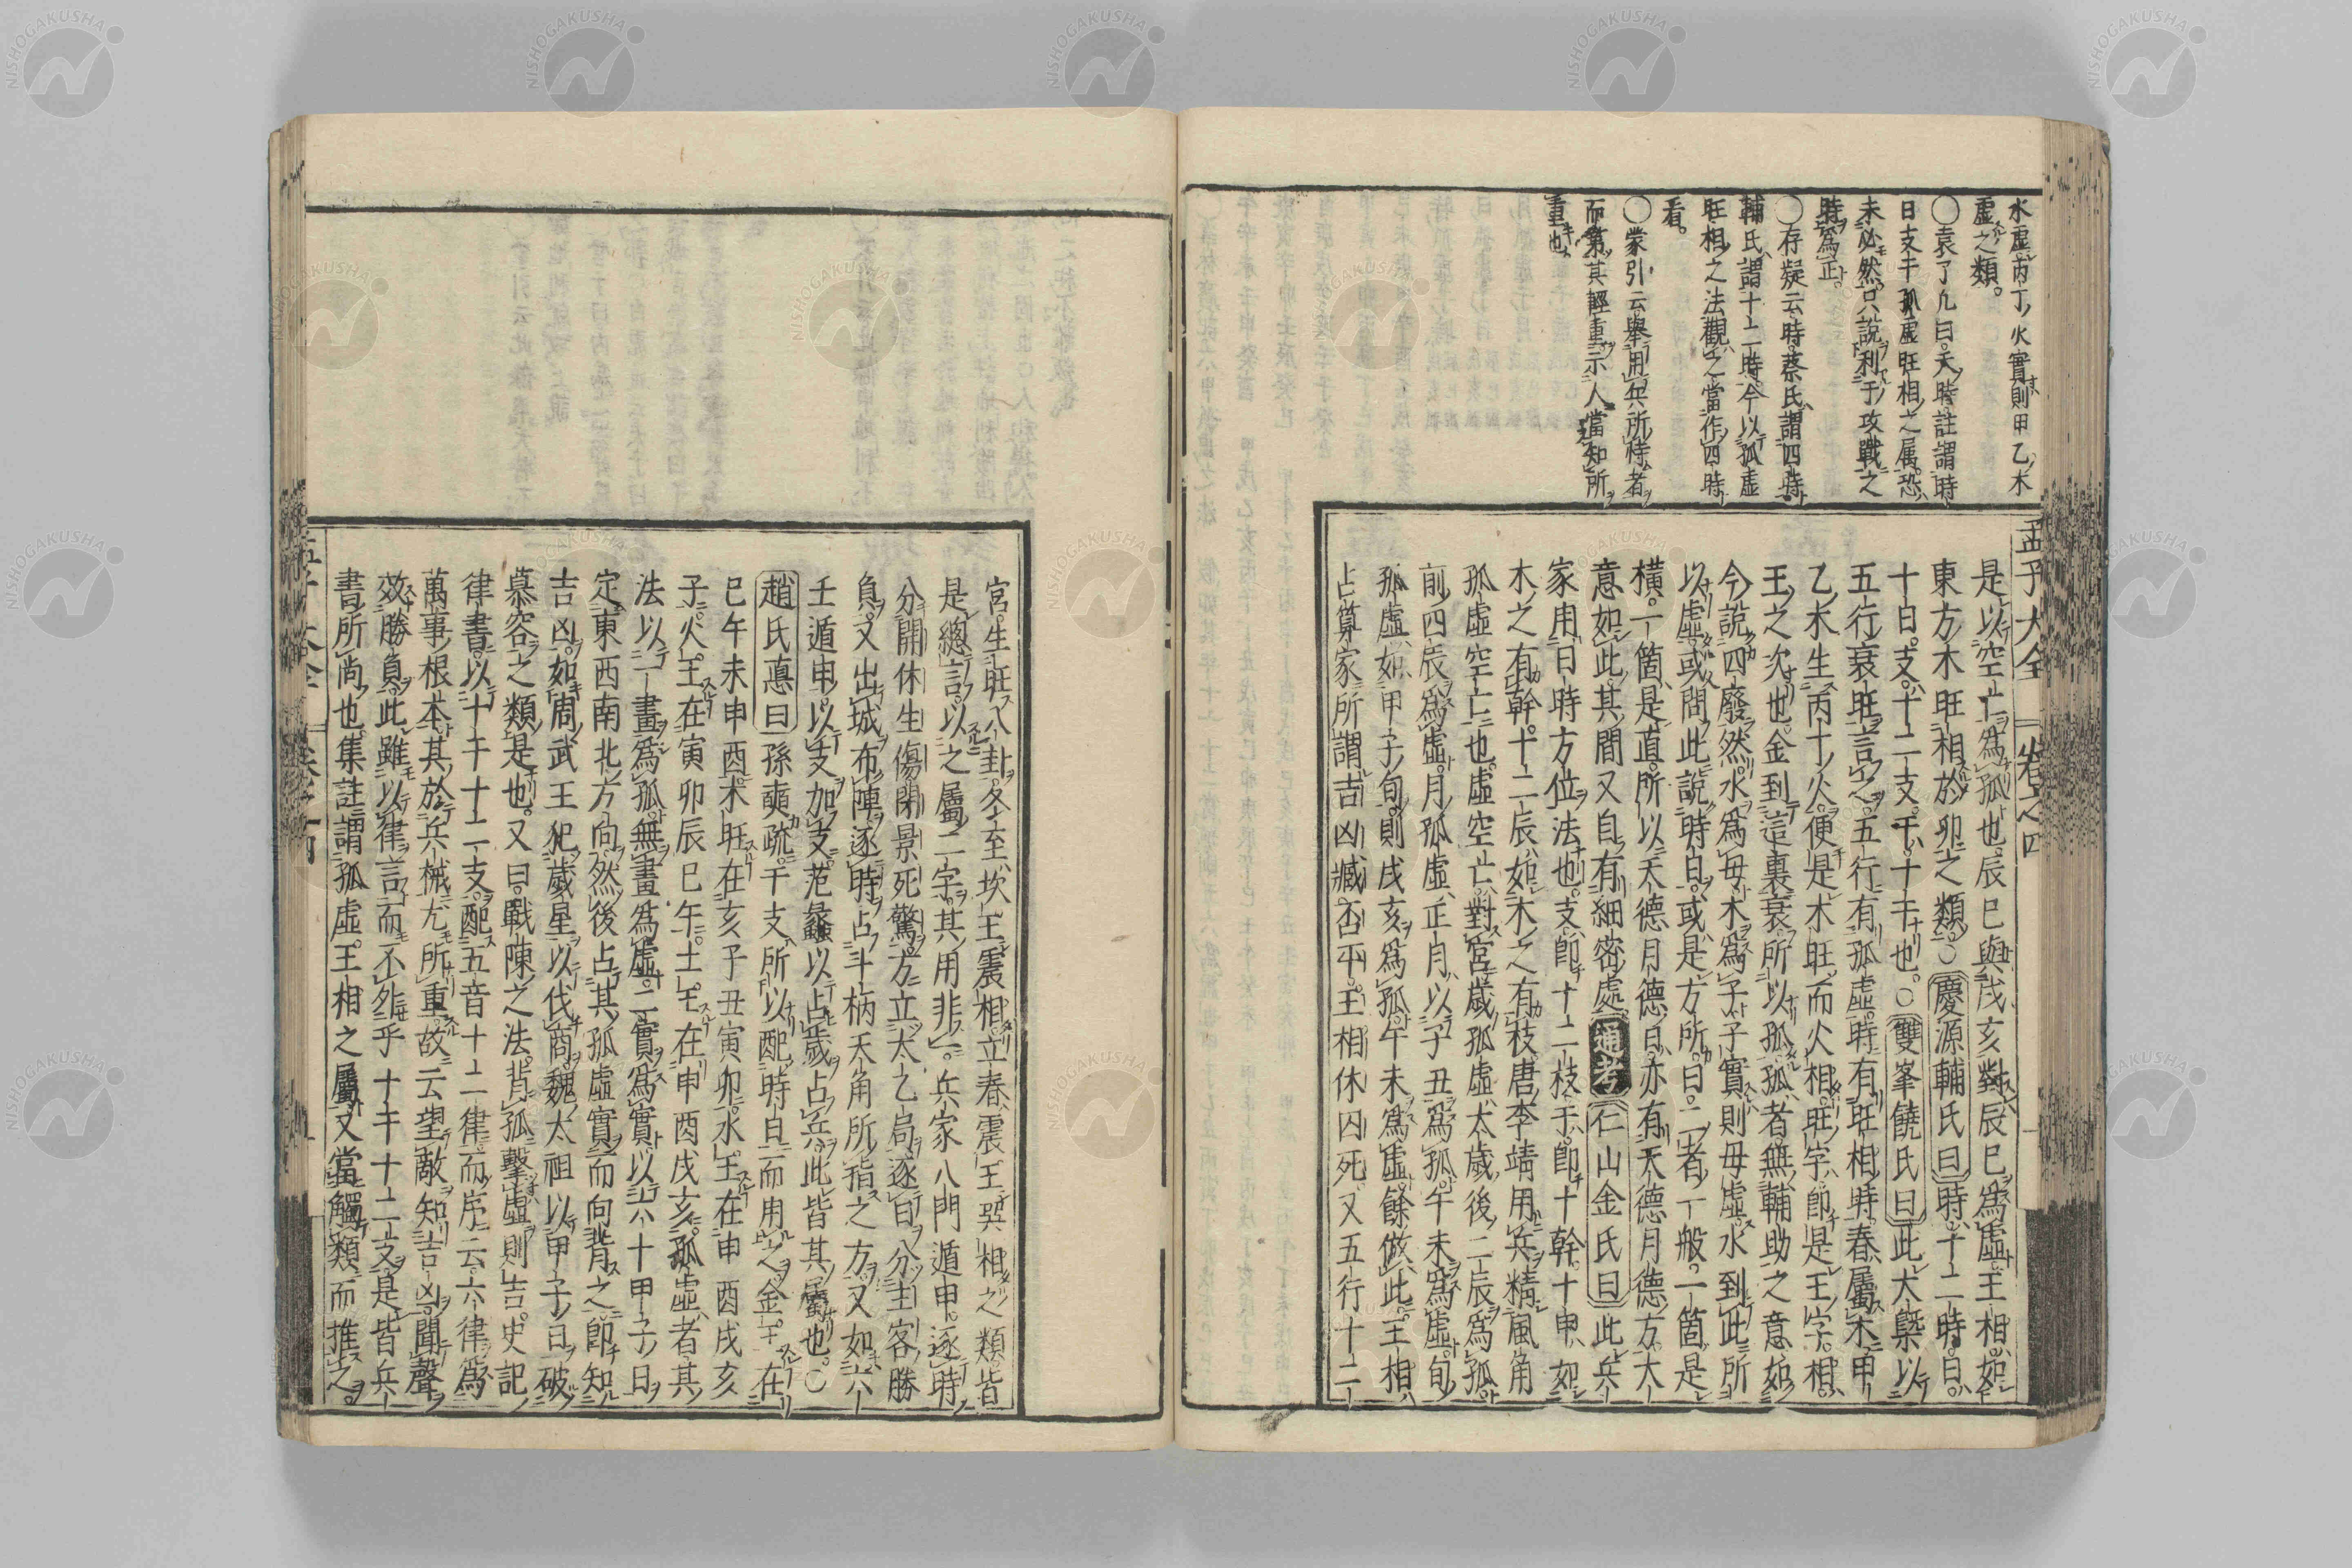 水虛丙丁火實則甲乙木
虛之類。
○袁了凡曰。天時註謂時
日支干孤虛旺相之屬。恐
未必然。只說利于攻戰之
時爲正。
○存疑云時。蔡氏謂四時。
輔氏謂十二時。今以孤虛
旺相之法觀之當作四時
看。
○蒙引云舉用兵所恃者
而第其輕重示人當知所
重也。
孟子大全 卷之四
是以空亡爲孤也。辰巳與戌亥對辰巳爲虛。王相如
東方木旺相於卯之類。○慶源輔氏曰時十二時。日
十日。支十二支。干十干也。○雙峯饒氏曰此大槩以
五行衰旺言之。五行有孤虛。時有旺相。時春屬木。甲
乙木生丙丁火。便是木旺而火相。旺字卽是王字。相
王之次也。金到這裏衰所以孤。孤者無輔助之意。如
今說四廢然。水爲母木爲子。子實則母虛。水到此所
以虛。或問此說時日。或是方所。曰二者一般。一箇是
橫。一箇是直。所以天德月德日。亦有天德月德方。大
意如此。其間又自有細密處 通考 仁山金氏曰此兵
家用日時方位法也。支卽十二枝。于卽十幹。十申如
木之有幹。十二辰如木之有枝。唐李靖用兵精風角
孤虛空亡也。虛空亡對宮。歲孤虛太歲後二辰爲孤
前四辰爲虛。月孤虛正月以子丑爲孤。午未爲虛。旬
孤虛如甲子旬。則戌亥爲孤。午未爲虛。餘倣此。王相
占算家所謂吉凶臧否平。王相休囚死。又五行十二
宮。生旺八卦冬至坎王震相。立春震王巽相之類。皆
是總言。以之屬二字。其用非一。兵家八門遁甲。逐時
分開休生傷閉景死驚方。立太乙局。逐日分主客勝
負。又出城布陣逐時占斗柄天角所指之方。又如六
壬遁甲。以支加支。范蠡以占歲占兵。此皆其屬也。○
趙氏悳曰孫奭疏。干支所以配時日而用之。金王在
巳午未申酉。木旺在亥子丑寅卯。水王在申酉戌亥
子。火王在寅卯辰巳午。土王在申酉戌亥。孤虛者其
法以一畫爲孤。無畫爲虛。二實爲實。以六十甲子日
定東西南北方向。然後占其孤虛實而向背之。卽知
吉凶。如周武王犯歲星以伐商。魏太祖以甲子日破
慕容之類是也。又曰。戰陳之法。背孤擊虛則吉。史記
律書。以十干十二支。配五音十二律而序云六律爲
萬事根本。其於兵械尤所重。故云望敵知吉凶。聞聲
效勝負。此雖以律言而不外乎十干十二支。是皆兵
書所尚也。集註謂孤虛。王相之屬。又當觸類而推之。
孟子大全 卷之四